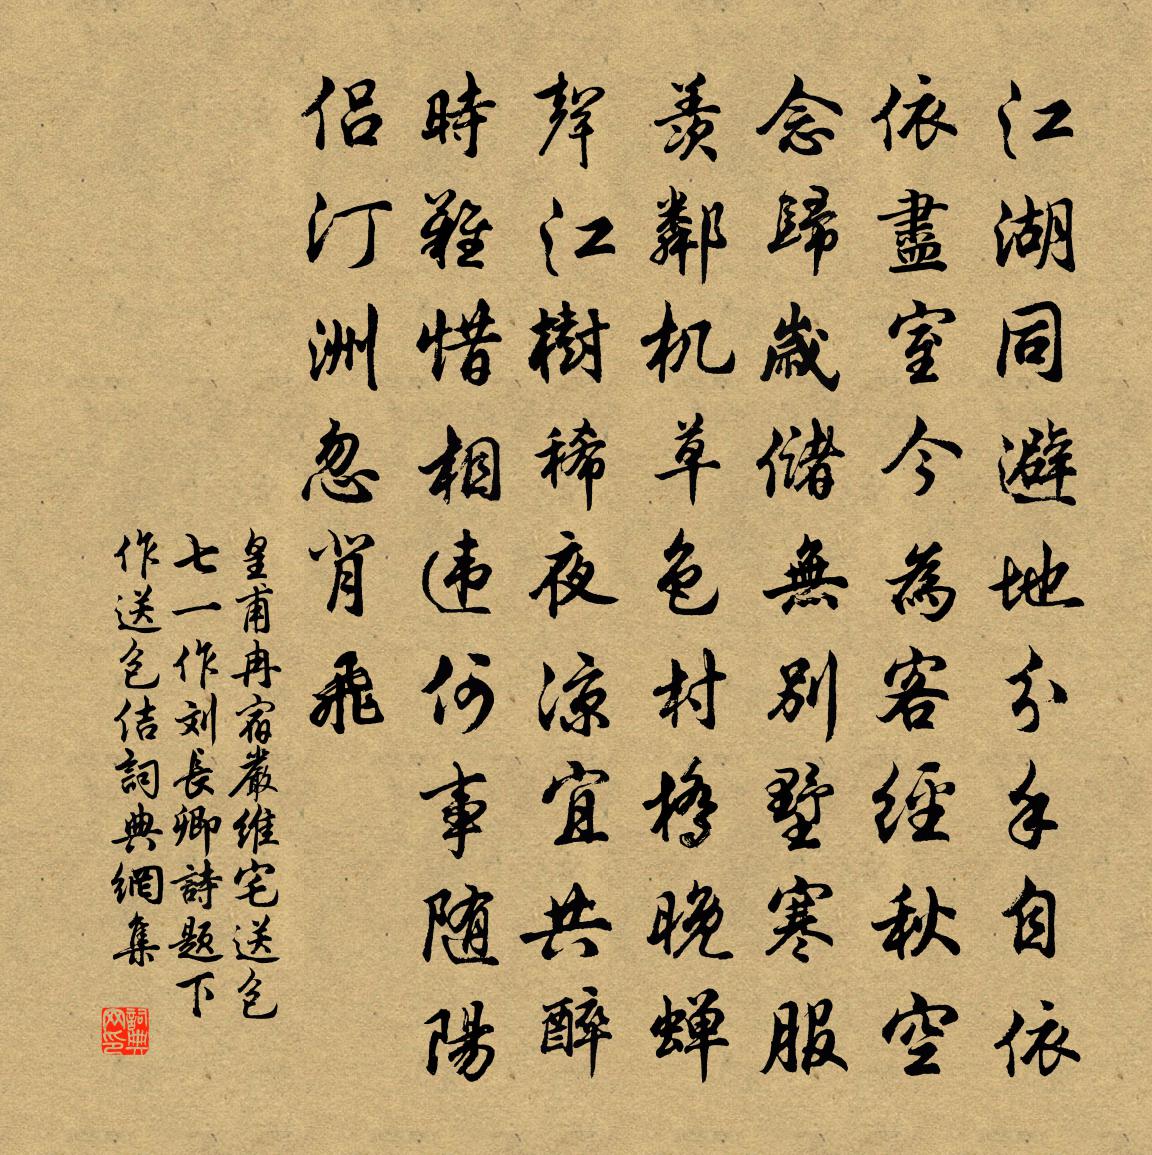 江湖同避地分手自依
依盡室今為客經秋空
念歸歲儲無別墅寒服
羨鄰机草色村橋晚蟬
聲江樹稀夜涼宜共醉
時難惜相違何事随陽
侶汀洲忽背飛
皇甫冉宿嚴維宅送包
七一作刘長卿詩题下
作送包佶詞典網集
詞典
网印